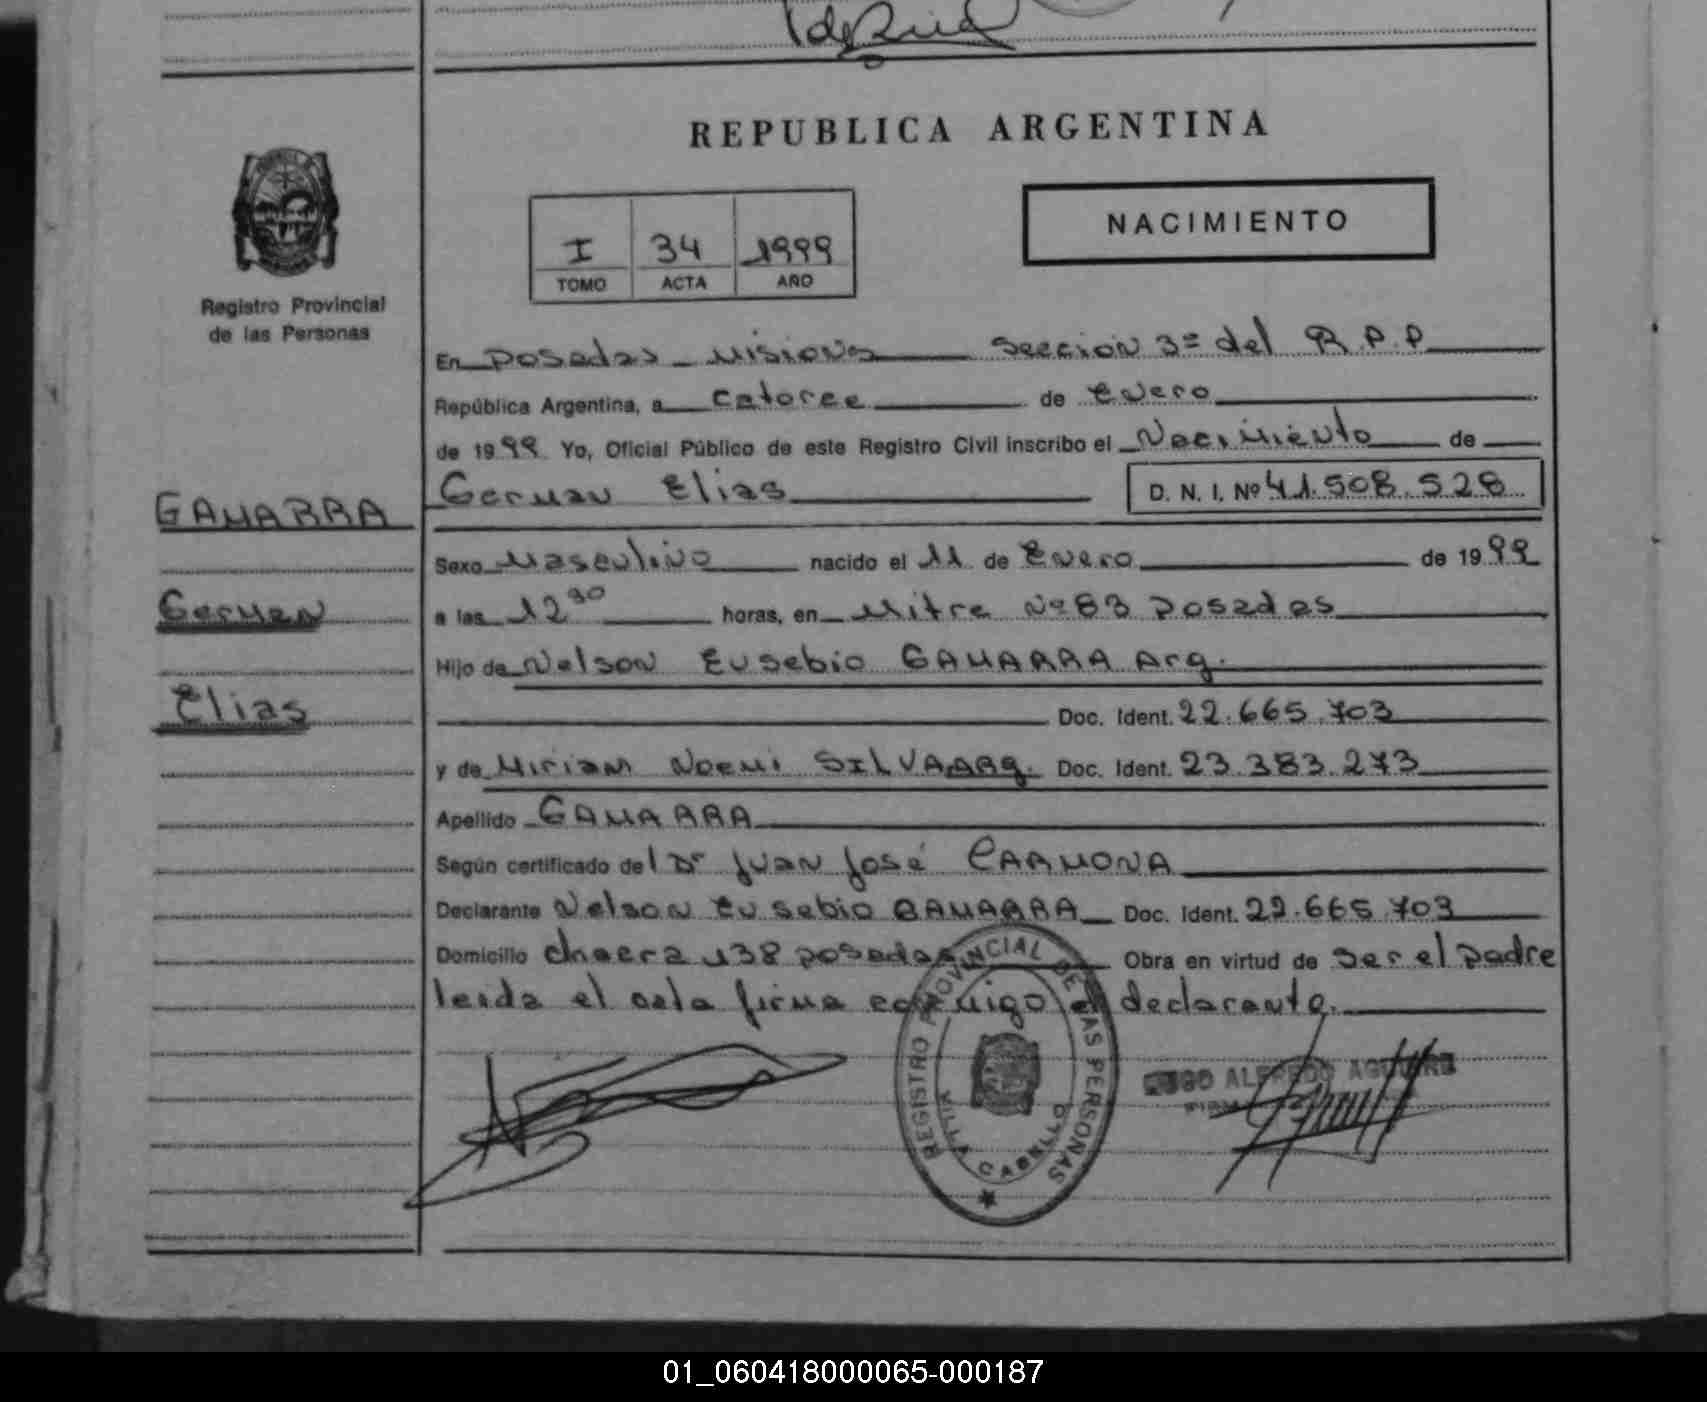 REPUBLICA ARGENTINA
NACIMIENTO
I 34 1999
TOMO ACTA AÑO
Registro Provincial
de las Personas
En Posadas Misiones Seccion 3ª del R.P.P
República Argentina, a catorce de Enero
de 1999 Yo, Oficial Público de este Registro Civil inscribo el Nacimiento de
German Elias D. N. I. Nº 41.508.528
GAMARRA
German
Elias
Sexo Masculino nacido el 11 de Enero de 1999
a las 12 30 horas, en Mitre Nº 83 Posadas
Hijo de Nelson Eusebio GAMARRA Arg.
Doc. Ident. 22.665.703
y de Miriam Noemi SILVA ARg. Doc. Ident. 23.383.273
Apellido GAMARRA
Según certificado del Dr Juan José CARMONA
Declarante Nelson Eusebio GAMARRA Doc. Ident. 22.665.703
Domicilio chacra 138 posadas Obra en virtud de ser el padre
leida el acta firma conmigo el declarante.
REGISTRO PROVINCIAL DE LAS PERSONAS
VILLA CABELLO
ALFREDO AGUIRRE
01_060418000065-000187